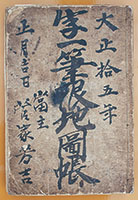 大正拾五年
字一筆限地圖帳
正月吉日
當主
菅家芳吉